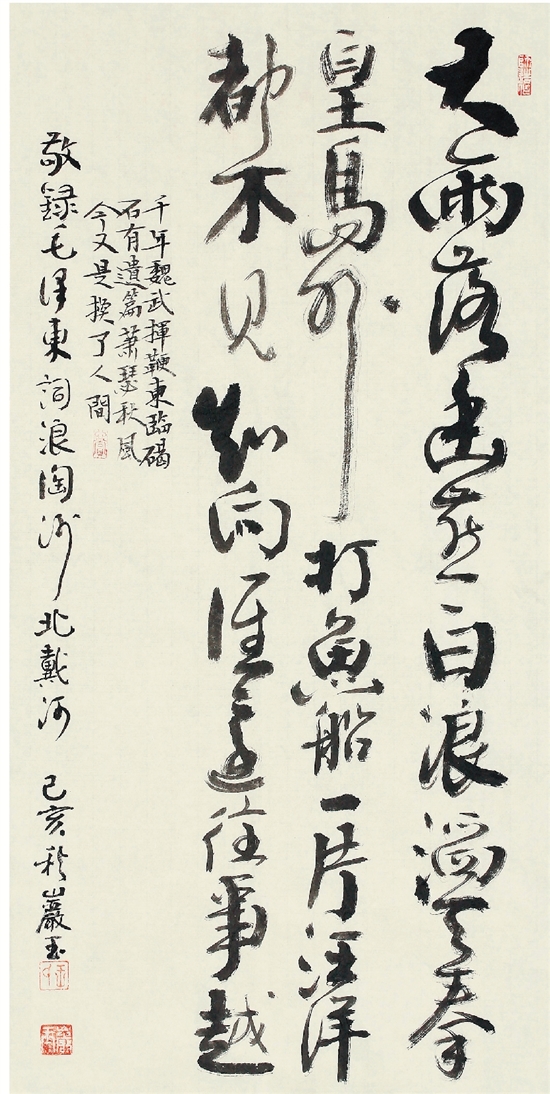 大雨落幽燕白浪滔天秦
皇島外打魚船一片汪洋
都不見知向誰邊往事越
千年魏武揮鞭東臨碣
石有遺篇蕭瑟秋風
今又是換了人間
敬録毛澤東詞浪淘沙北戴河 己亥秋巖玉